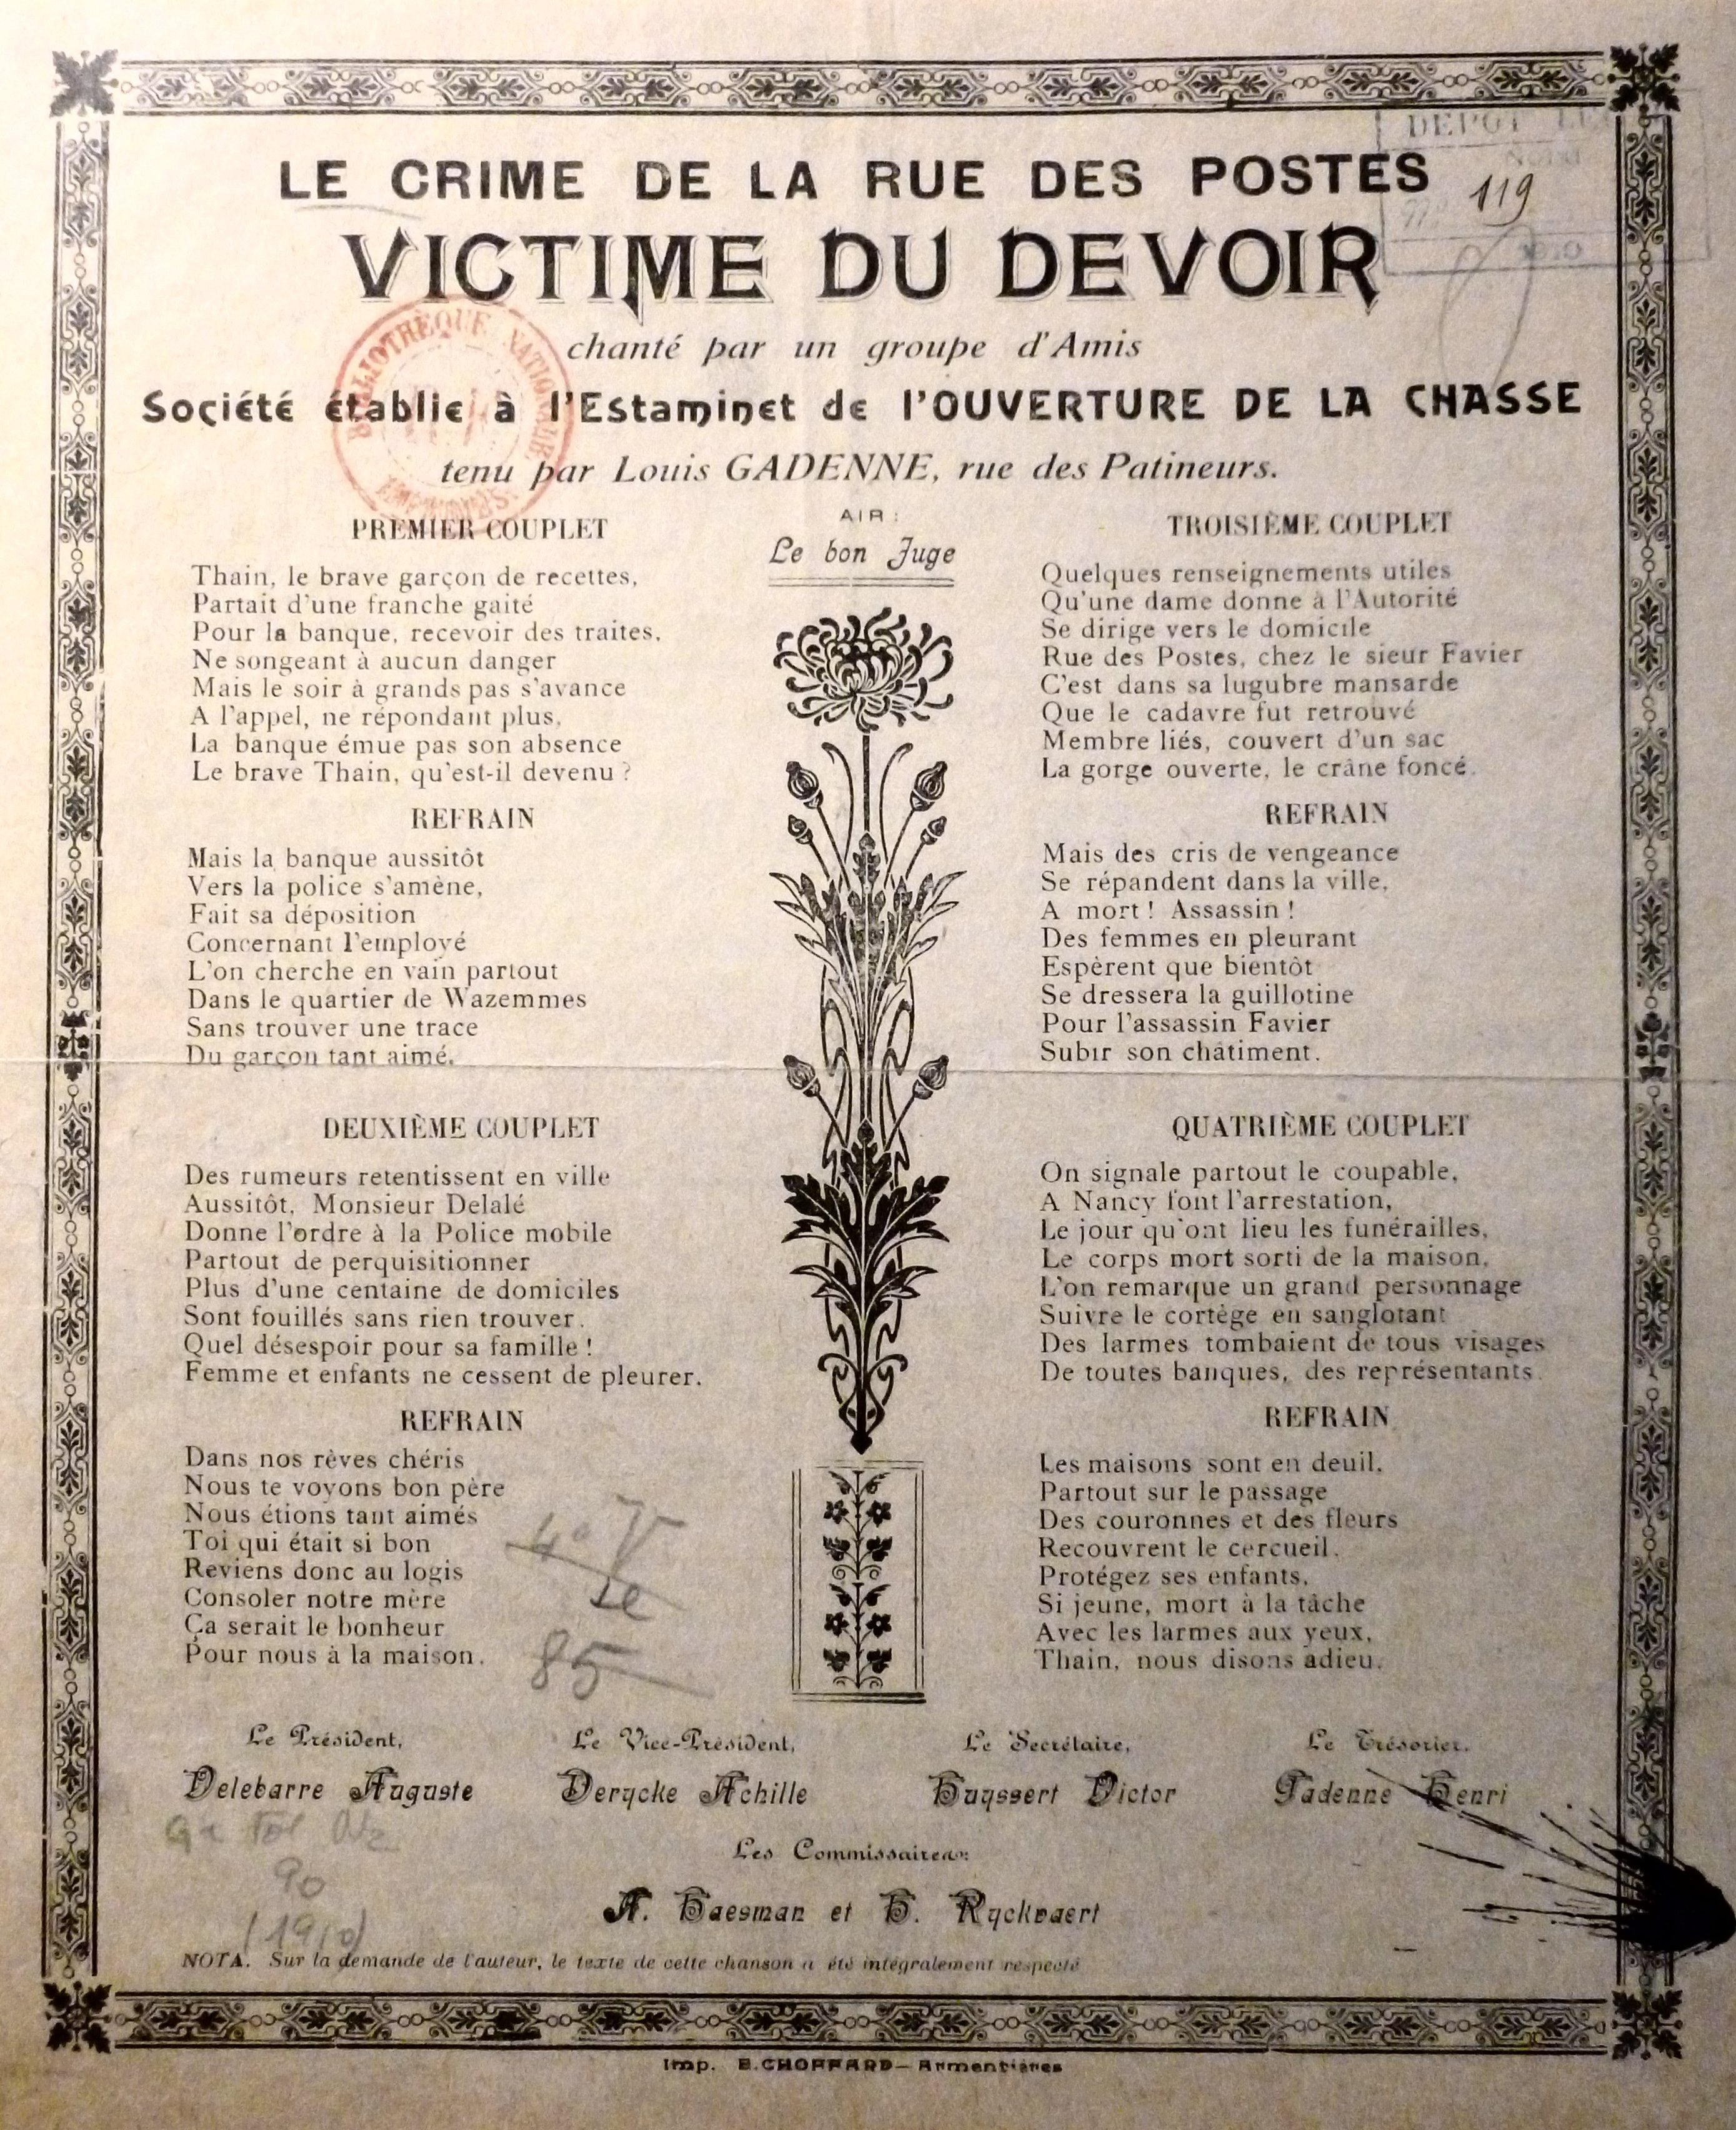 DÉPOT
119
LE CRIME DE LA RUE DES POSTES
VICTIME DU DEVOIR
chanté par un groupe d'Amis
Société établie à l'Estaminet de l'OUVERTURE DE LA CHASSE
tenu par Louis GADENNE, rue des Patineurs.
BIBLIOTHÈQUE NATIONALE
AIR :
Le bon Juge
PREMIER COUPLET
Thain, le brave garçon de recettes,
Partait d'une franche gaité
Pour la banque, recevoir des traites,
Ne songeant à aucun danger
Mais le soir à grands pas s'avance
A l'appel, ne répondant plus,
La banque émue pas son absence
Le brave Thain, qu'est-il devenu ?
REFRAIN
Mais la banque aussitôt
Vers la police s'amène,
Fait sa déposition
Concernant l'employé
L'on cherche en vain partout
Dans le quartier de Wazemmes
Sans trouver une trace
Du garçon tant aimé.
DEUXIÈME COUPLET
Des rumeurs retentissent en ville
Aussitôt, Monsieur Delalé
Donne l'ordre à la Police mobile
Partout de perquisitionner
Plus d'une centaine de domiciles
Sont fouillés sans rien trouver.
Quel désespoir pour sa famille !
Femme et enfants ne cessent de pleurer.
REFRAIN
Dans nos rêves chéris
Nous te voyons bon père
Nous étions tant aimés
Toi qui était si bon
Reviens donc au logis
Consoler notre mère
Ça serait le bonheur
Pour nous à la maison.
85
TROISIÈME COUPLET
Quelques renseignements utiles
Qu'une dame donne à l'Autorité
Se dirige vers le domicile
Rue des Postes, chez le sieur Favier
C'est dans sa lugubre mansarde
Que le cadavre fut retrouvé
Membre liés, couvert d'un sac
La gorge ouverte, le crâne foncé.
REFRAIN
Mais des cris de vengeance
Se répandent dans la ville,
A mort ! Assassin !
Des femmes en pleurant
Espèrent que bientôt
Se dressera la guillotine
Pour l'assassin Favier
Subir son châtiment.
QUATRIÈME COUPLET
On signale partout le coupable,
A Nancy font l'arrestation,
Le jour qu'ont lieu les funérailles,
Le corps mort sorti de la maison,
L'on remarque un grand personnage
Suivre le cortège en sanglotant
Des larmes tombaient de tous visages
De toutes banques, des représentants.
REFRAIN
Les maisons sont en deuil,
Partout sur le passage
Des couronnes et des fleurs
Recouvrent le cercueil.
Protégez ses enfants,
Si jeune, mort à la tâche
Avec les larmes aux yeux,
Thain, nous disons adieu.
Le Président, Le Vice-Président, Le Secrétaire, Le Trésorier,
Delebarre Auguste Derycke Achille Huyssert Victor Gadenne Henri
Les Commissaires:
A. Haesman et H. Ryckvaert
90
(1910)
NOTA. Sur la demande de l'auteur, le texte de cette chanson a été intégralement respecté
Imp. E. CHOFFARD — Armentières